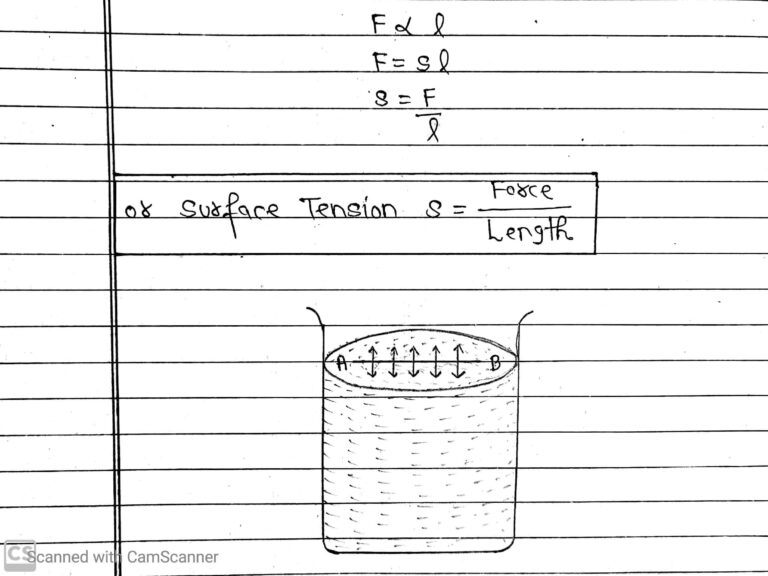 F ∝ l
F = S l
S = F
l
or Surface Tension S = Force
Length
A B
CS Scanned with CamScanner